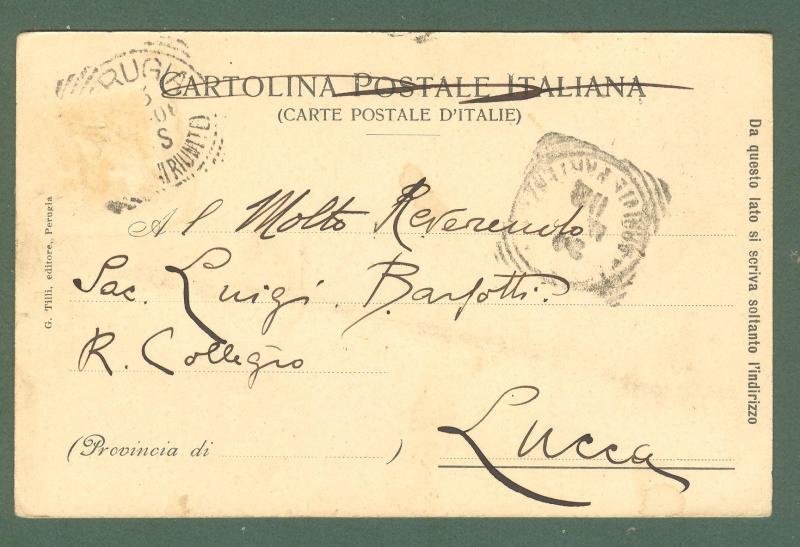 CARTOLINA POSTALE ITALIANA
(CARTE POSTALE D'ITALIE)
RUGI
S
RIUNITE)
Al Molto Reverendo
Sac. Luigi Barsotti.
R. Collegio
(Provincia di
Lucca
G. Tilli, editore, Perugia
Da questo lato si scriva soltanto l'indirizzo